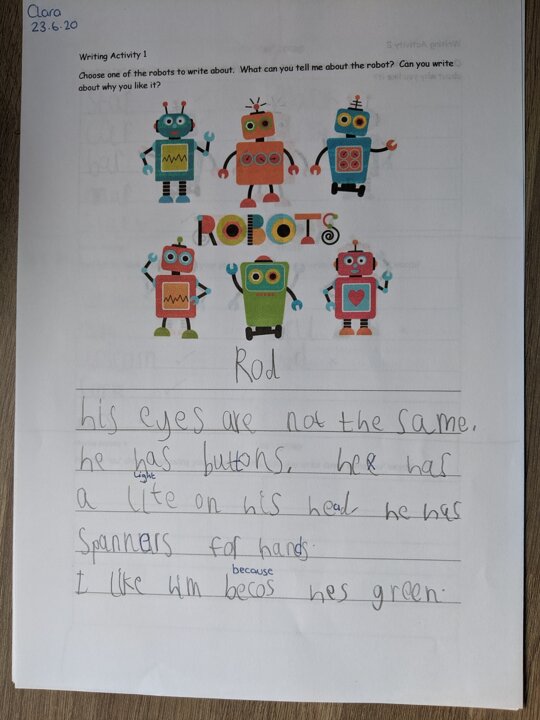 Clara
23.6.20
Writing Activity 1
Choose one of the robots to write about. What can you tell me about the robot? Can you write
about why you like it?
ROBOTS
Rod
his eyes are not the same.
he has buttons. he has
light
a lite on his head he has
spanners for hands.
because
I like him becos hes green.